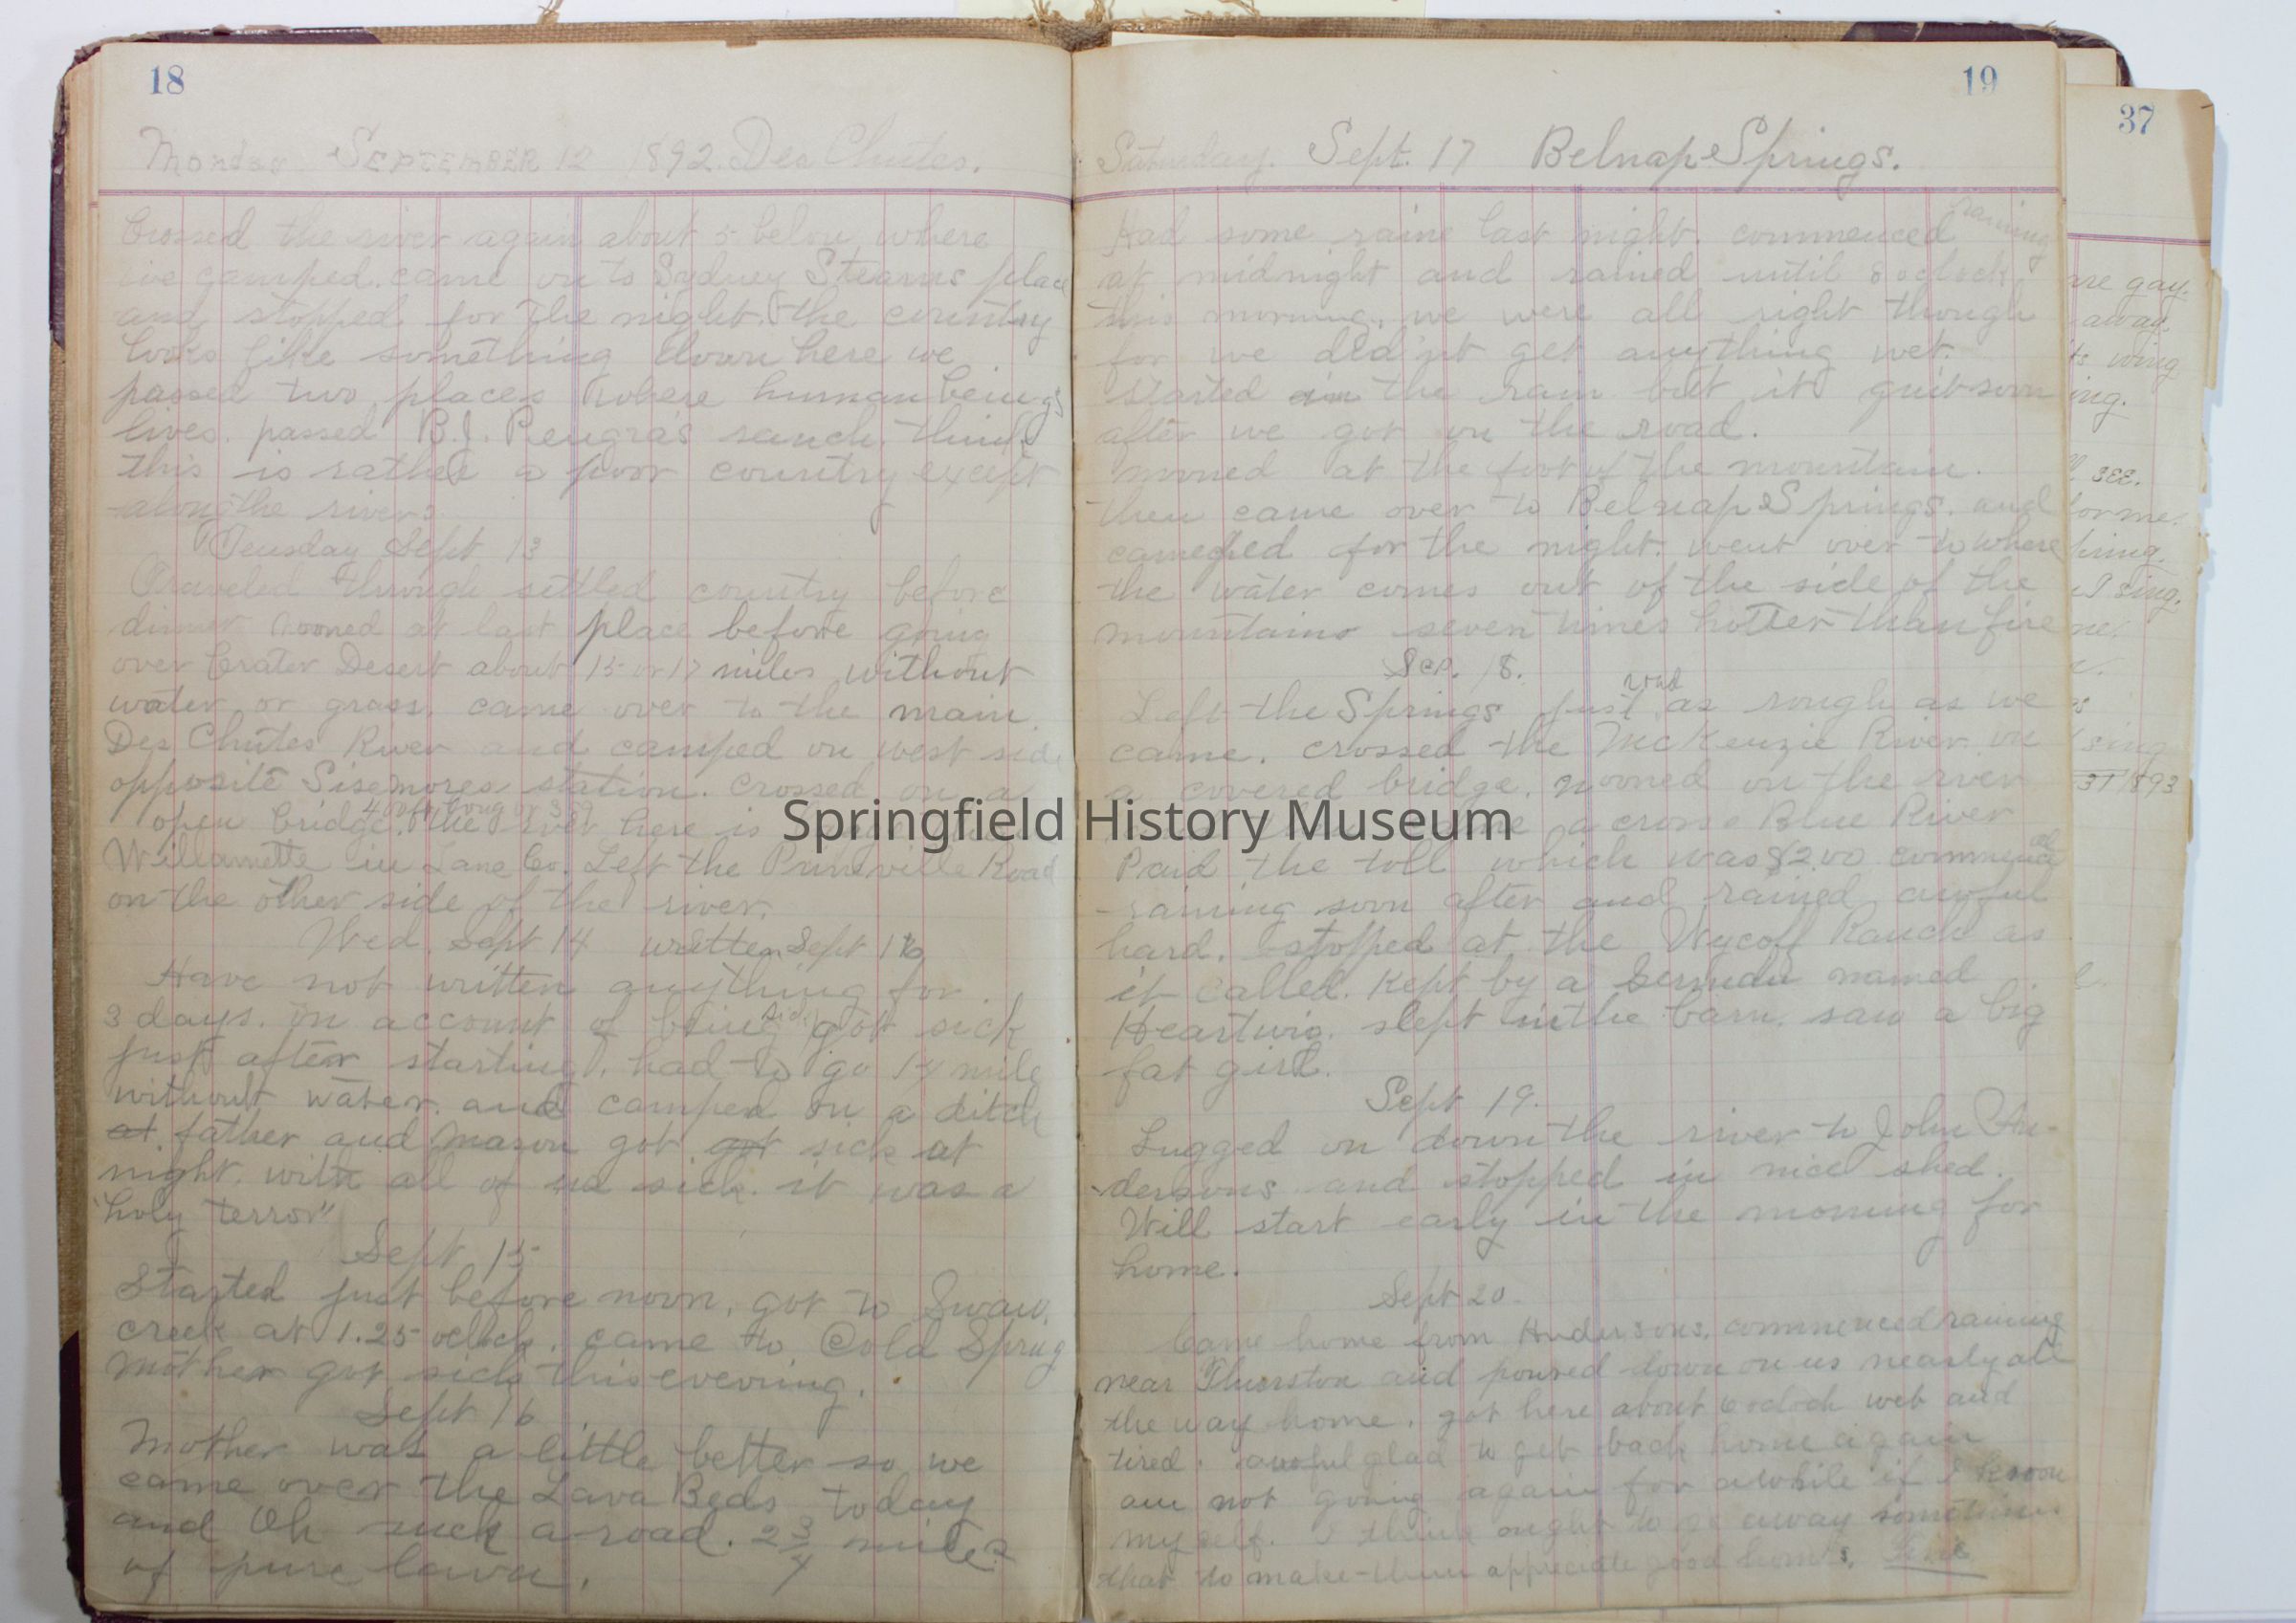 18
Monday SEPTEMBER 12 1892. Des Chutes.
Crossed the river again about 5 below where
we camped. came on to Sydney Stearns place
and stopped for the night. the country
looks like something down here we
passed two places where human beings
lives. passed B.J. Pengra's ranch. think
this is rather a poor country except
along the rivers
Teusday Sept 13
Traveled through settled country before
dinner nooned at last place before going
over Crater Desert about 15 or 17 miles without
water or grass. came over to the main
Des Chutes River and camped on west side
opposite Sisemores station. crossed on a
open bridge. the river here is
Willamette in Lane Co. Left the Prineville Road
on the other side of the river.
Wed. Sept 14 written Sept 16
Have not written anything for
3 days. on account of being sick got sick
just after starting. had to go 14 mile
without water. and camped on a ditch
at father and Mason got got sick at
night. with all of us sick. it was a
"holy terror"
Sept 15
Started just before noon, got to Swaw.
creek at 1.25 oclock. came to Cold Sprng
Mother got sick this evening.
Sept 16
Mother was a little better so we
came over the Lava Beds today
and Oh such a road. 2 3/4 miles
of pure lava.
19
Saturday. Sept. 17 Belnap Springs.
Had some raine last night. commenced raining
at midnight and rained until 8 oclock
this morning. we were all right though
for we did'nt get anything wet.
started in the rain but it quit soon
after we got on the road.
nooned at the foot of the mountain.
then came over to Belnap Springs. and
camped for the night. went over to where
the water comes out of the side of the
mountains seven times hotter than fire
Sep. 18.
Left the Springs just as rough as we
came. crossed the McKenzie River on
a covered bridge. nooned on the river
came across Blue River
Paid the toll which was $2.00 commenced
raining soon after and rained awful
hard. stopped at the Wycoff Ranch as
it called. kept by a named
Heartwig. slept in the barn. saw a big
fat girl.
Sept 19.
Lugged on down the river to John An-
dersons and stopped in nice shed.
Will start early in the morning for
home.
Sept 20.
Came home from Andersons. commenced raining
near Thurston and poured down on us nearly all
the way home. got here about 6 oclock wet and
tired. awful glad to get back home again
am not going again for awhile if I know
myself. I think ought to go away sometimes
that to make them appreciate good homes.
37
are gay.
away.
wing
ing.
SEE.
for me.
I sing.
me.
sing
31 1893
Springfield History Museum